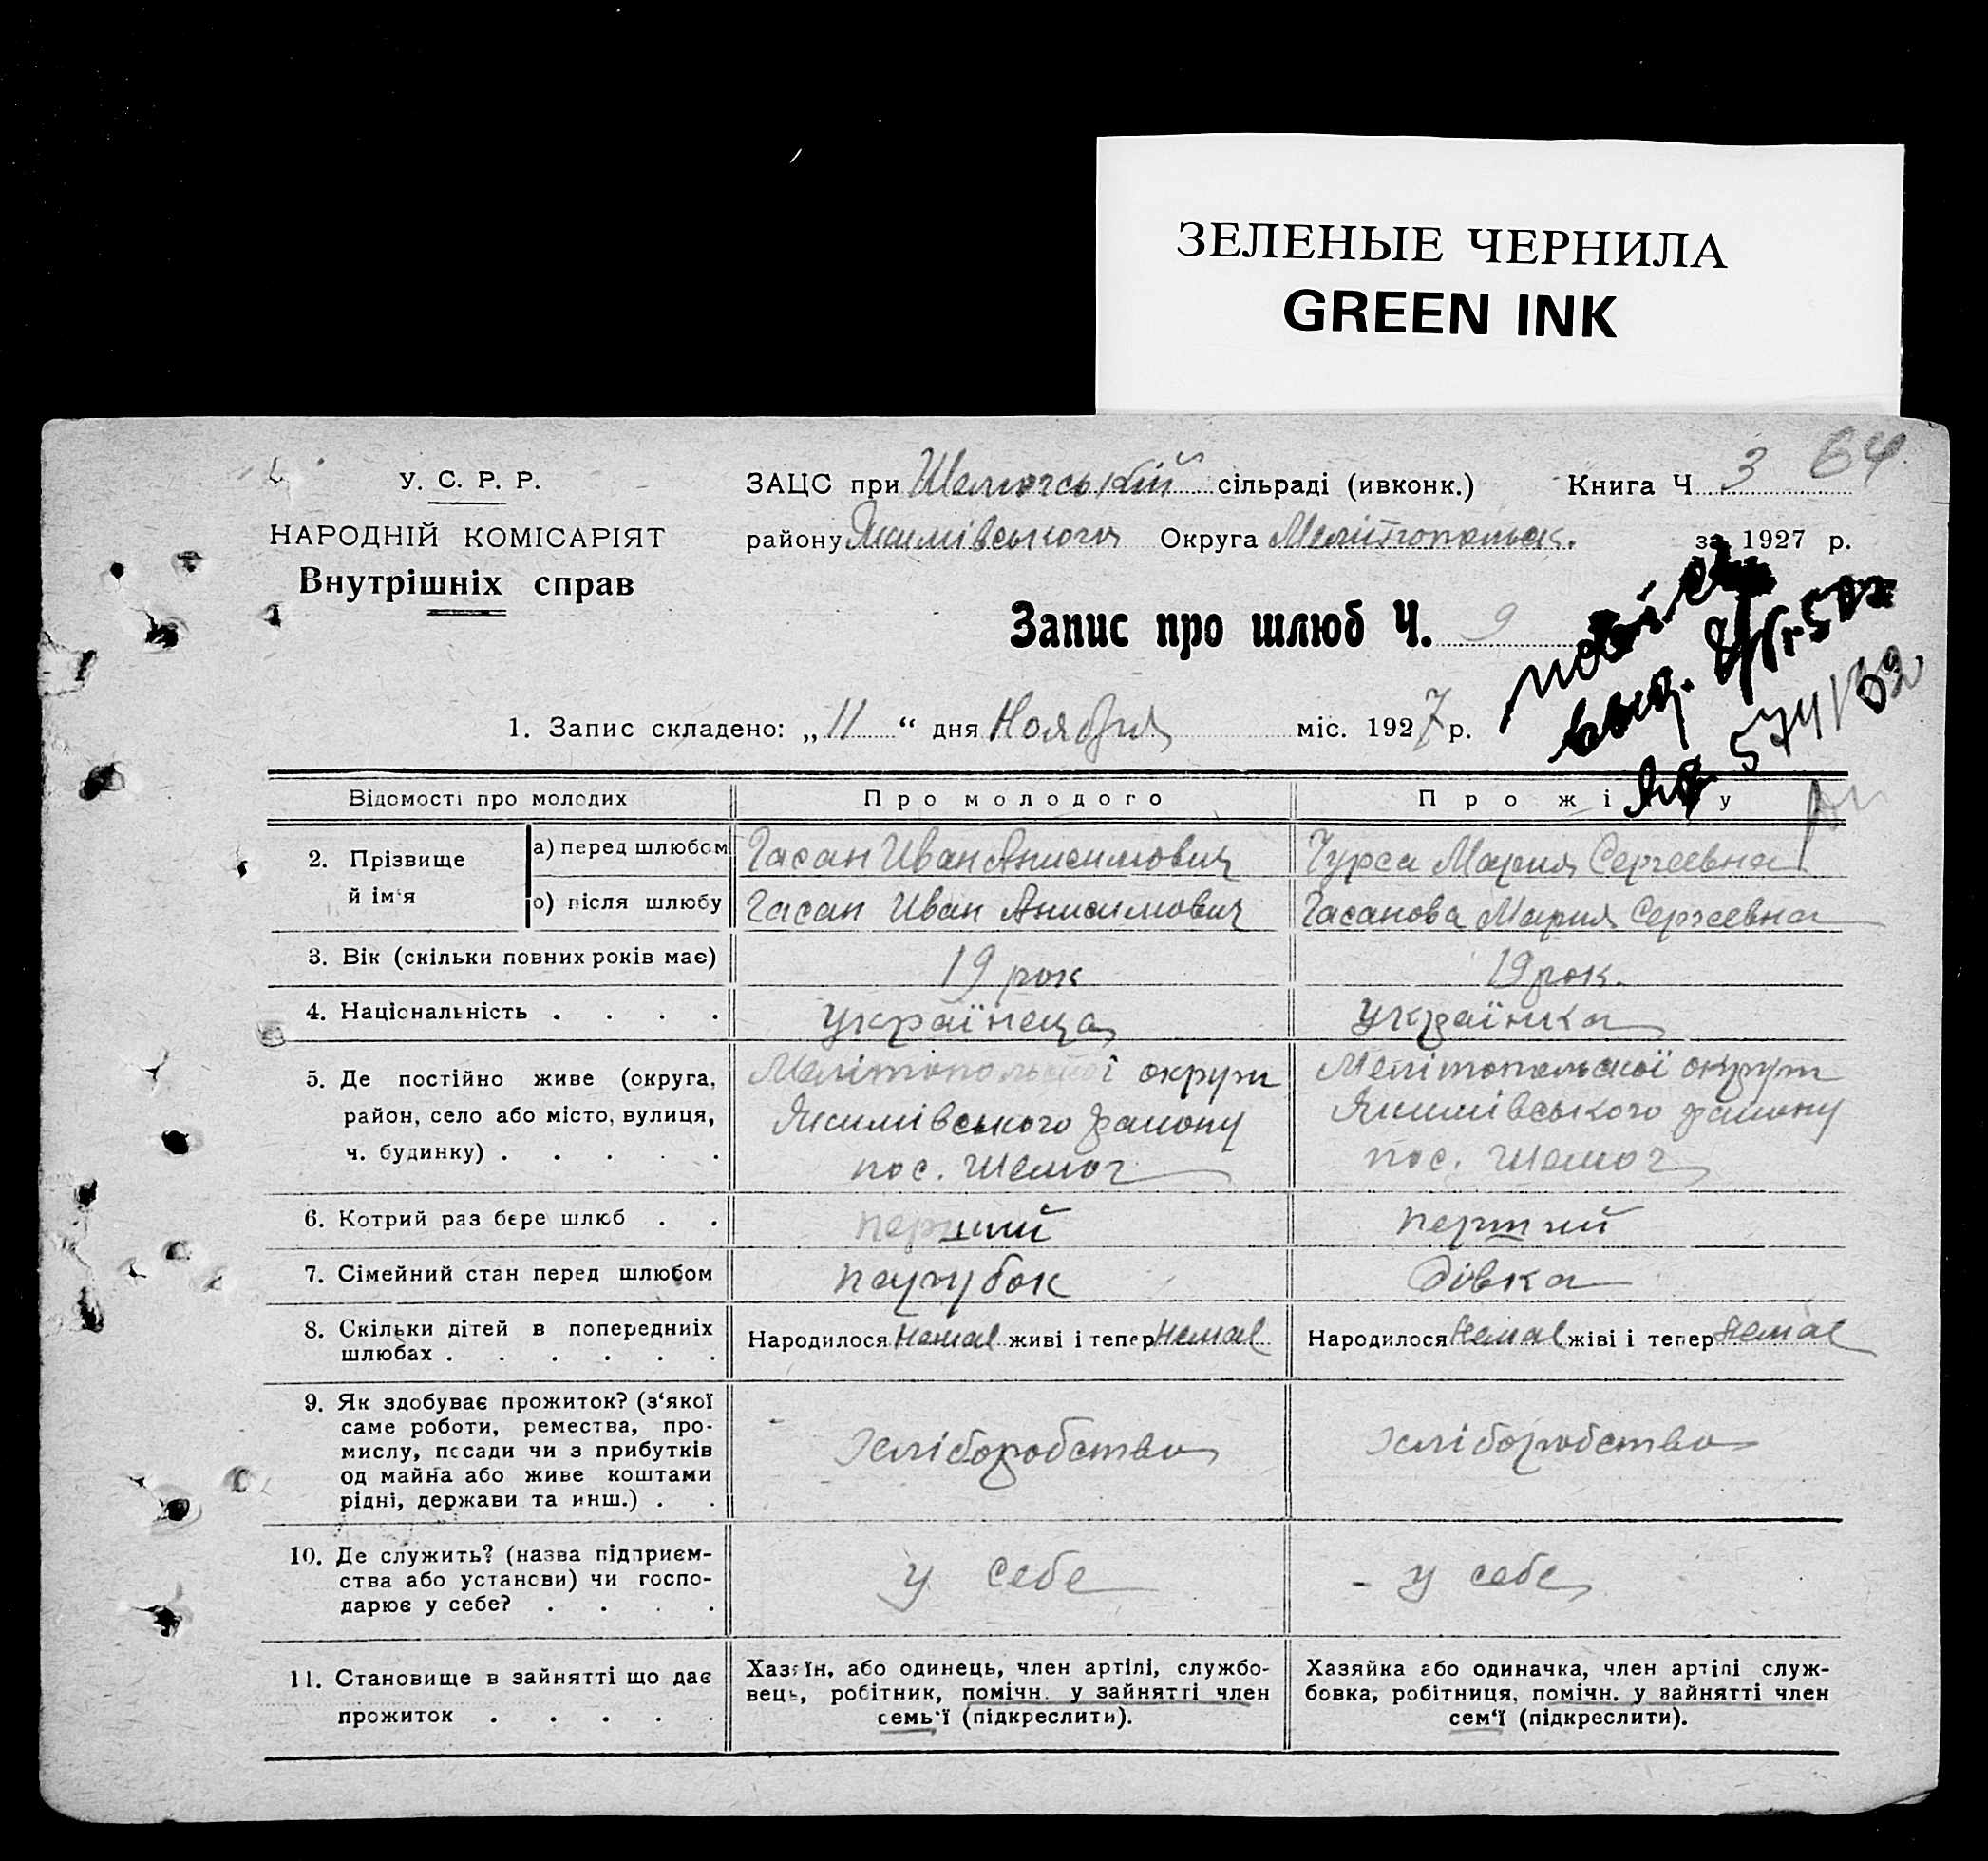 ЗЕЛЕНЫЕ ЧЕРНИЛА
GREEN INK
У. С. Р. Р.
НАРОДНІЙ КОМІСАРІЯТ
Внутрішніх справ
ЗАЦС при сільраді (ивконк.) Книга Ч. 3 64
району Якимівського Округа Мелітопольск. за 1927 р.
Запис про шлюб Ч. 9
выд.
574/132
1. Запис складено: „11“ дня Ноября міс. 1927 р.
Відомості про молодих Про молодого Про жінку
2. Прізвище й ім'я
а) перед шлюбом Гасан Иван Анисимович Чурса Мария Сергеевна
о) після шлюбу Гасан Иван Анисимович Гасанова Мария Сергеевна
3. Вік (скільки повних років має) 19 рок 19 рок.
4. Національність . . . . українець українка
5. Де постійно живе (округа, Мелітопольської округи Мелітопольської округи
район, село або місто, вулиця, Якимівського району Якимівського району
ч. будинку) . . . . . пос. Шемог пос. Шемог
6. Котрий раз бере шлюб . . перший перший
7. Сімейний стан перед шлюбом парубок дівка
8. Скільки дітей в попередниіх Народилося Немає живі і тепер Немає Народилося Немає жіві і тепер Немає
шлюбах . . . . . .
9. Як здобуває прожиток? (з‘якої
саме роботи, ремества, про-
мислу, посади чи з прибутків хліборобство хліборобство
од майна або живе коштами
рідні, держави та инш.) . .
10. Де служить? (назва підприєм-
ства або установи) чи госпо- у себе у себе
дарює у себе? . . . .
11. Становище в зайнятті що дає
прожиток . . . . .
Хазяїн, або одинець, член артілі, службо-
вець, робітник, помічн. у зайнятті член
семь'ї (підкреслити).
Хазяйка або одиначка, член артілі служ-
бовка, робітниця, помічн. у зайнятті член
сем‘ї (підкреслити).